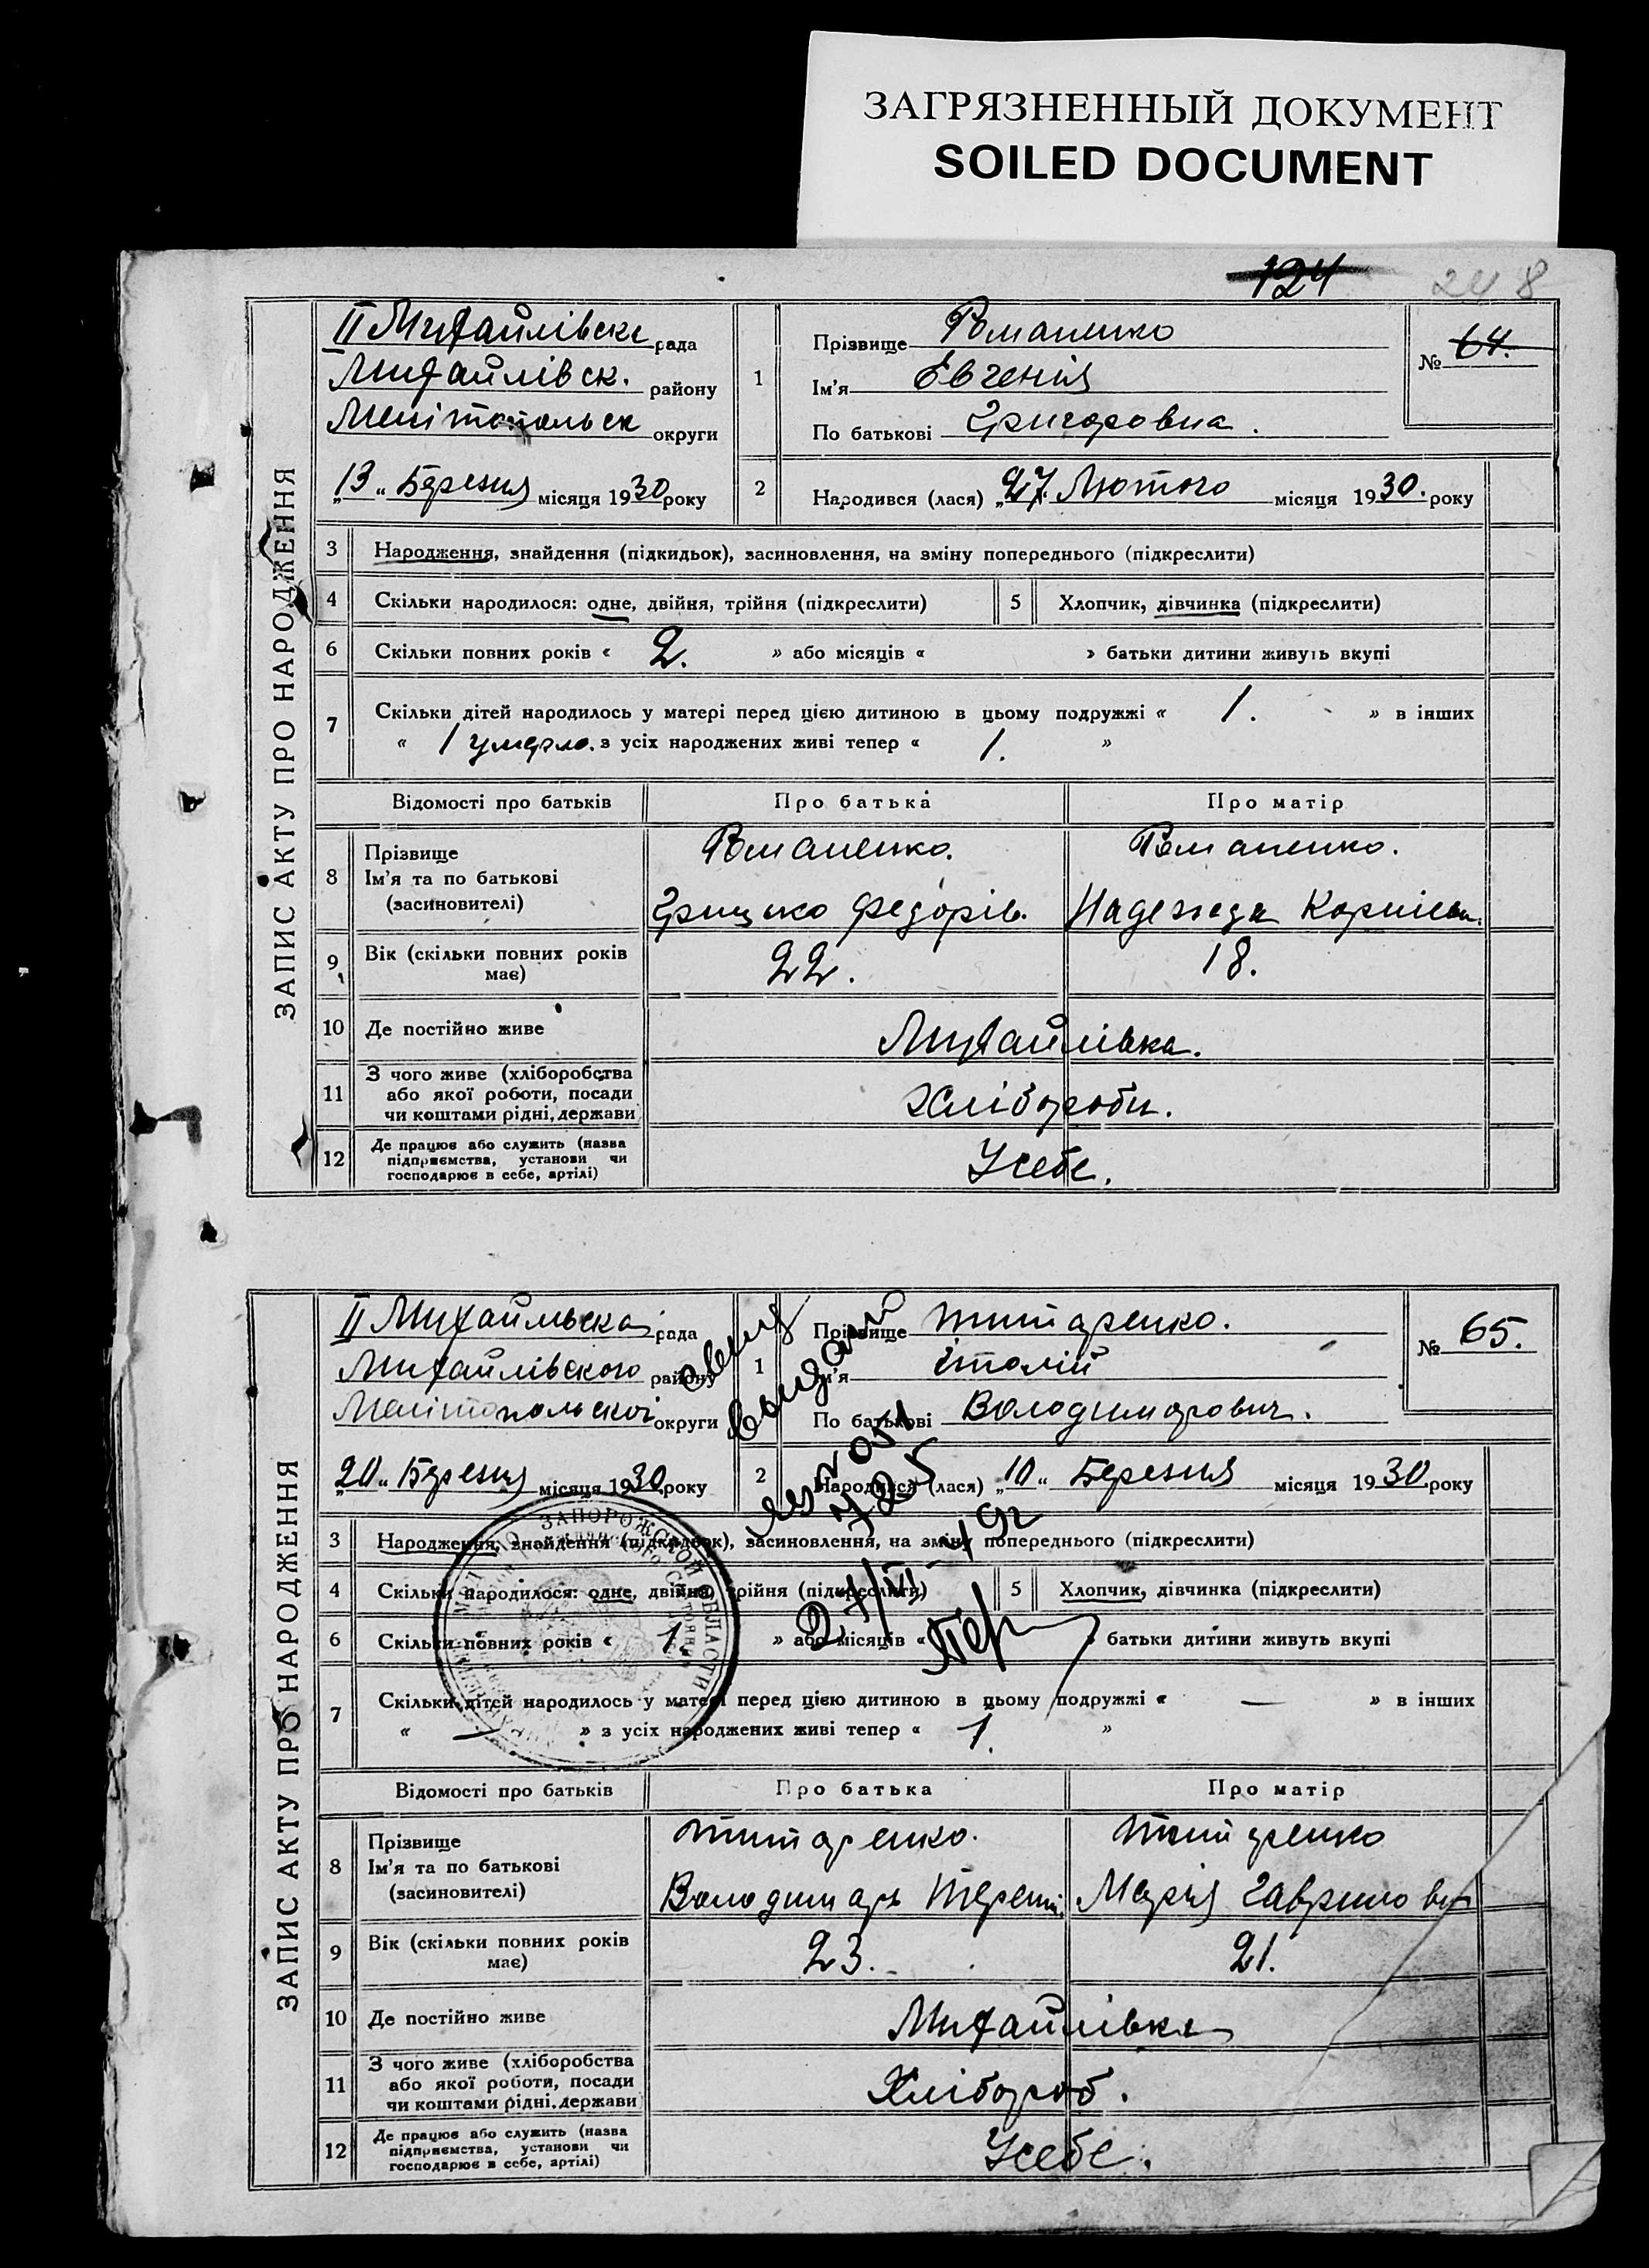 ЗАГРЯЗНЕННЫЙ ДОКУМЕНТ
SOILED DOCUMENT
124 248
ЗАПИС АКТУ ПРО НАРОДЖЕННЯ
II Михайлівська рада
Михайлівск. району
Мелітопольск округи
„13“ Березня місяця 1930 року
1
Прізвище Романенко
Ім'я Евгенія
По батькові Григоровна.
№ 64.
2
Народився (лася) „27. Лютого місяця 1930. року
3 Народження, знайдення (підкидьок), засиновлення, на зміну попереднього (підкреслити)
4 Скільки народилося: одне, двійня, трійня (підкреслити) 5 Хлопчик, дівчинка (підкреслити)
6 Скільки повних років « 2. » або місяців « » батьки дитини живуть вкупі
7 Скільки дітей народилось у матері перед цією дитиною в цьому подружжі « 1. » в інших
« 1 умерло. з усіх народжених живі тепер « 1. »
Відомості про батьків Про батька Про матір
8 Прізвище
Ім'я та по батькові
(засиновителі)
Романенко. Романенко.
Грицько Федорів. Надежда
9 Вік (скільки повних років
має)
22. 18.
10 Де постійно живе Михайлівка.
11 З чого живе (хліборобства
або якої роботи, посади
чи коштами рідні, держави
Хлібороби.
12 Де працює або служить (назва
підприємства, установи чи
господарює в себе, артілі)
У себе.
ЗАПИС АКТУ ПРО НАРОДЖЕННЯ
II Михайльська рада
Михайлівского району
Мелітопольскої округи
„20“ Березня місяця 1930 року
1
Прізвище Титаренко.
Ім'я італій
По батькові Володимирович.
№ 65.
2
Народився (лася) „10“ Березня місяця 1930 року
3 Народження, знайдення (підкидьок), засиновлення, на зміну попереднього (підкреслити)
4 Скільки народилося: одне, двійня, трійня (підкреслити) 5 Хлопчик, дівчинка (підкреслити)
6 Скільки повних років « 1. » або місяців « » батьки дитини живуть вкупі
7 Скільки дітей народилось у матері перед цією дитиною в цьому подружжі « — » в інших
« — » з усіх народжених живі тепер « 1. »
ЗАПОРОЖСКОЙ ОБЛАСТИ
Відомості про батьків Про батька Про матір
8 Прізвище
Ім'я та по батькові
(засиновителі)
Титаренко. Титаренко
Володимирь Мария
9 Вік (скільки повних років
має)
23. 21.
10 Де постійно живе Михайлівка
11 З чого живе (хліборобства
або якої роботи, посади
чи коштами рідні, держави
Хлібороб.
12 Де працює або служить (назва
підприємства, установи чи
господарює в себе, артілі)
У себе.